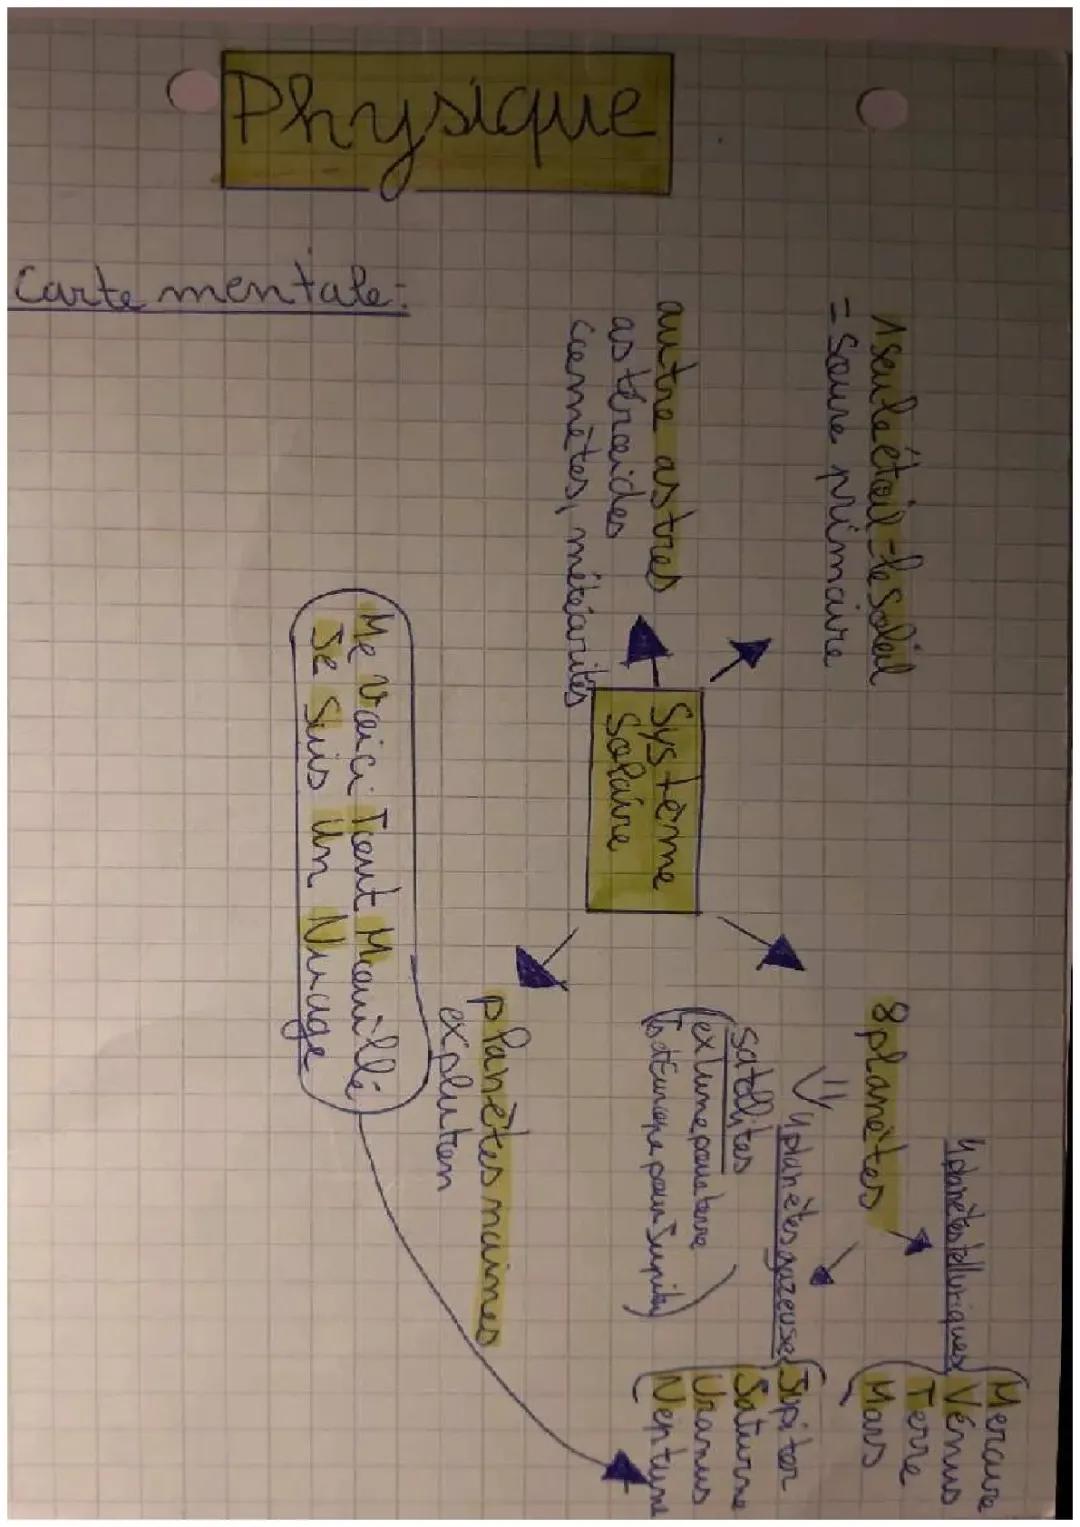 Physique
Carte mentale:
1 seule étoil = le soleil
= Source primaire
autre astres
astéroides
comètes, météorites
Système
Solaire
8 planètes
4 planètes telluriques
Mercure
Vénus
Terre
Mars
4 planètes gazeuses
Jupiter
Saturne
Uranus
Neptune
satellites
(ex lune pour terre
planètes naines
ex pluton
Me Voici Tout Mouillé
Je Suis Un Nuage